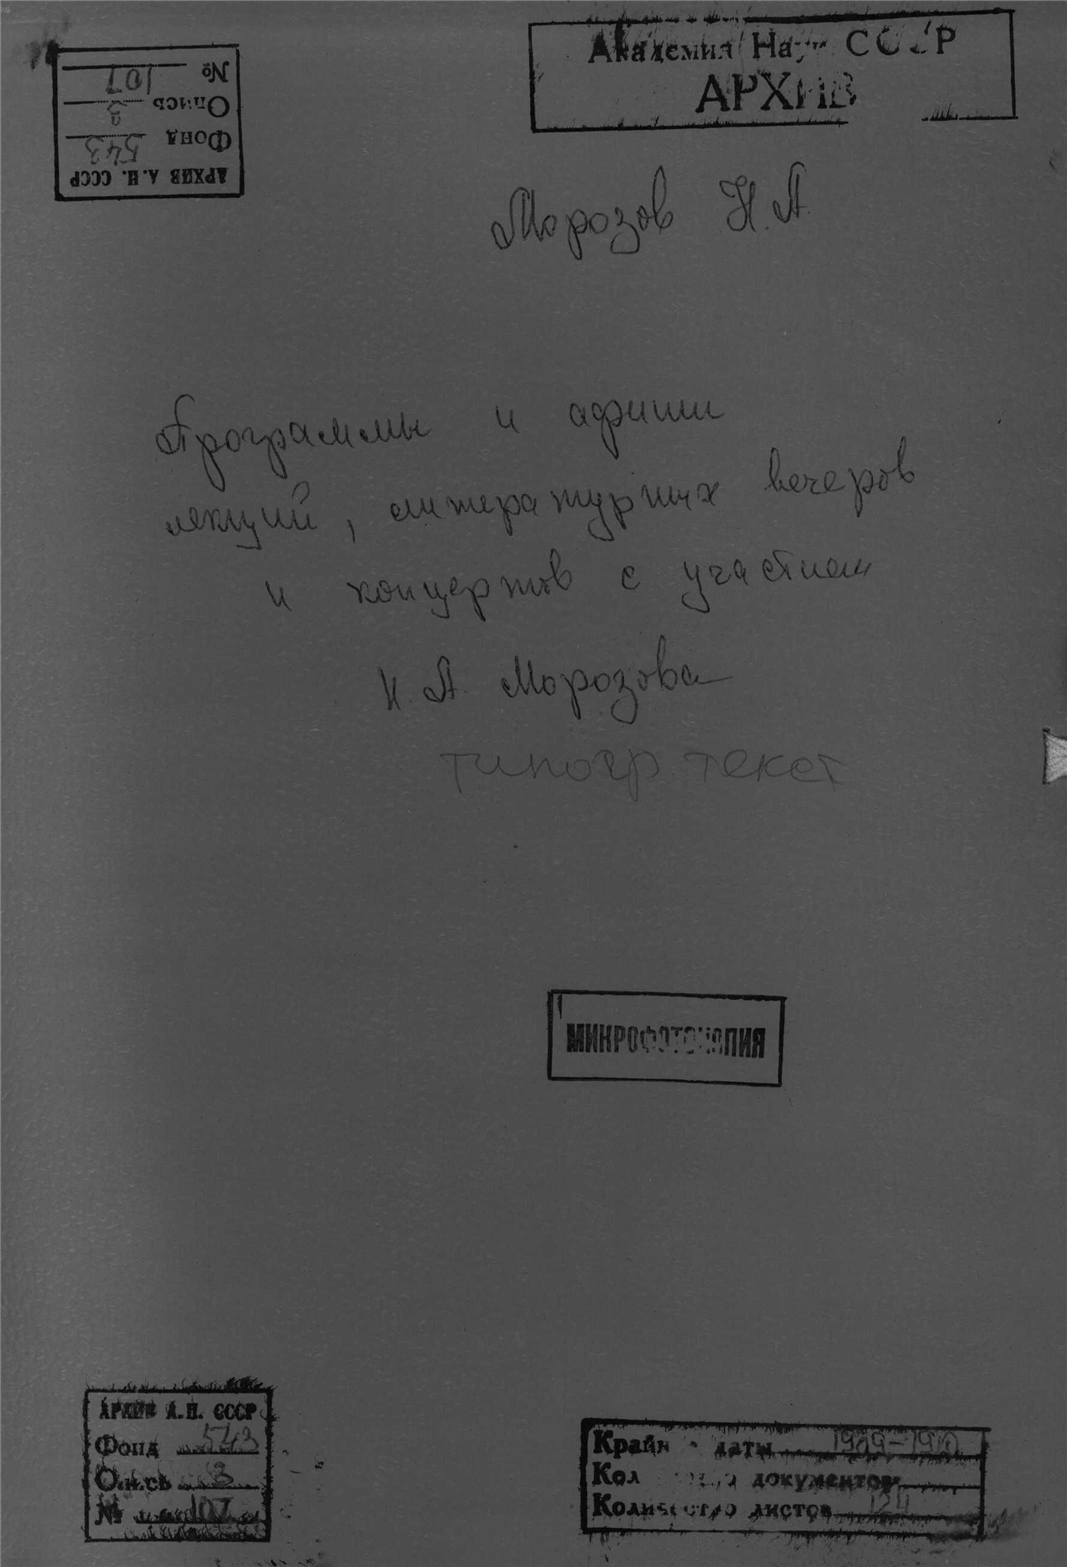 Академия Наук СССР
АРХИВ
АРХИВ А.Н. СССР
Фонд 543
Опись 3
№ 107
Морозов Н.А.
Программы и афиши
лекций, литературных вечеров
и концертов с участием
Н.А. Морозова
типогр текст
МИКРОФОТОКОПИЯ
АРХИВ А.Н. СССР
Фонд 543
Опись 3
№ 107
Крайн даты
Количество документов
Количество листов 124